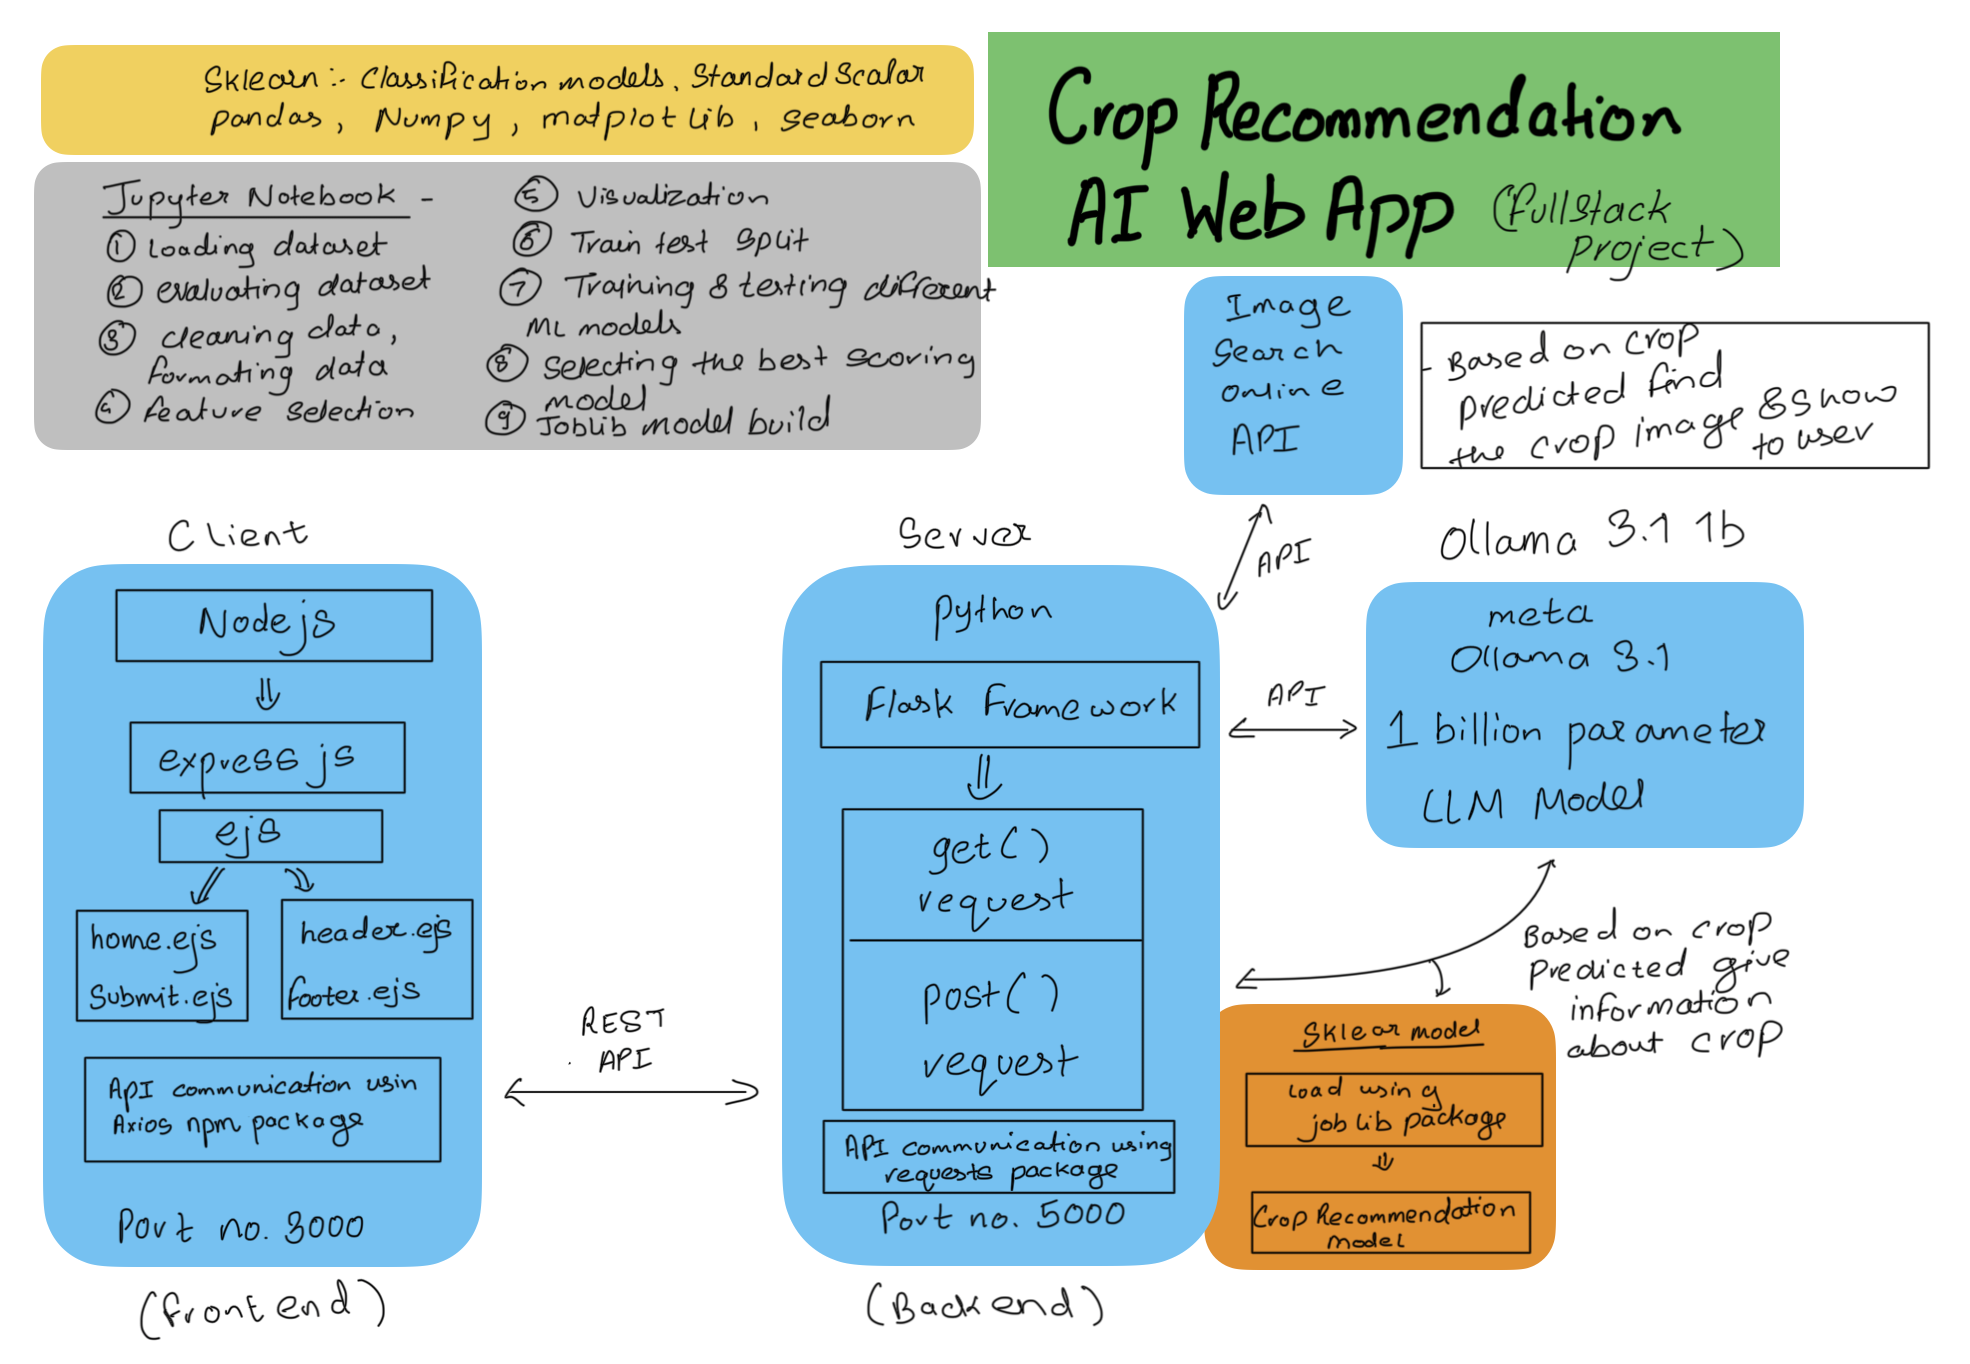 Sklearn :- Classification models, Standard Scalar
pandas, Numpy, matplotlib, seaborn
Crop Recommendation
AI Web App (fullstack
project)
Jupyter Notebook -
① Loading dataset
② evaluating dataset
③ cleaning data,
formating data
④ feature selection
⑤ Visualization
⑥ Train test split
⑦ Training & testing different
ML models
⑧ selecting the best scoring
model
⑨ Joblib model build
Image
Search
online
API
- Based on crop
predicted find
the crop image & show
to user
Client
Nodejs
express js
ejs
home.ejs
Submit.ejs
header.ejs
footer.ejs
API communication usin
Axios npm package
Port no. 3000
(frontend)
REST
API
Server
python
flask framework
get()
request
post()
request
API communication using
requests package
Port no. 5000
(Backend)
API
API
Ollama 3.1 1b
meta
Ollama 3.1
1 billion parameter
LLM Model
Based on crop
Predicted give
information
about crop
Sklear model
Load using
joblib package
Crop Recommendation
model